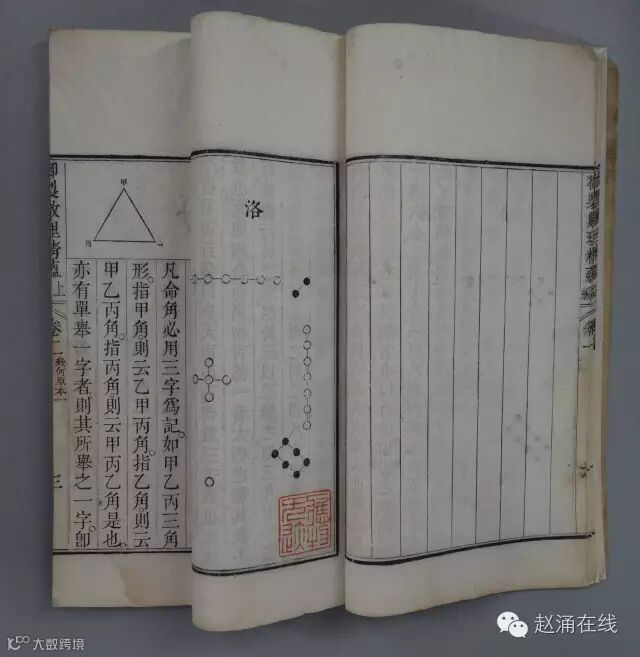 御製數理精蘊
卷一
洛
甲
丙
凡命角必用三字爲記如甲乙丙三角
形。指甲角則云乙甲丙角。指乙角則云
甲乙丙角。指丙角則云甲丙乙角是也。
亦有單舉一字者則其所舉之一字。卽
御製數理精蘊上
幾何原本一
三
赵涌在线
10100 大数跨境